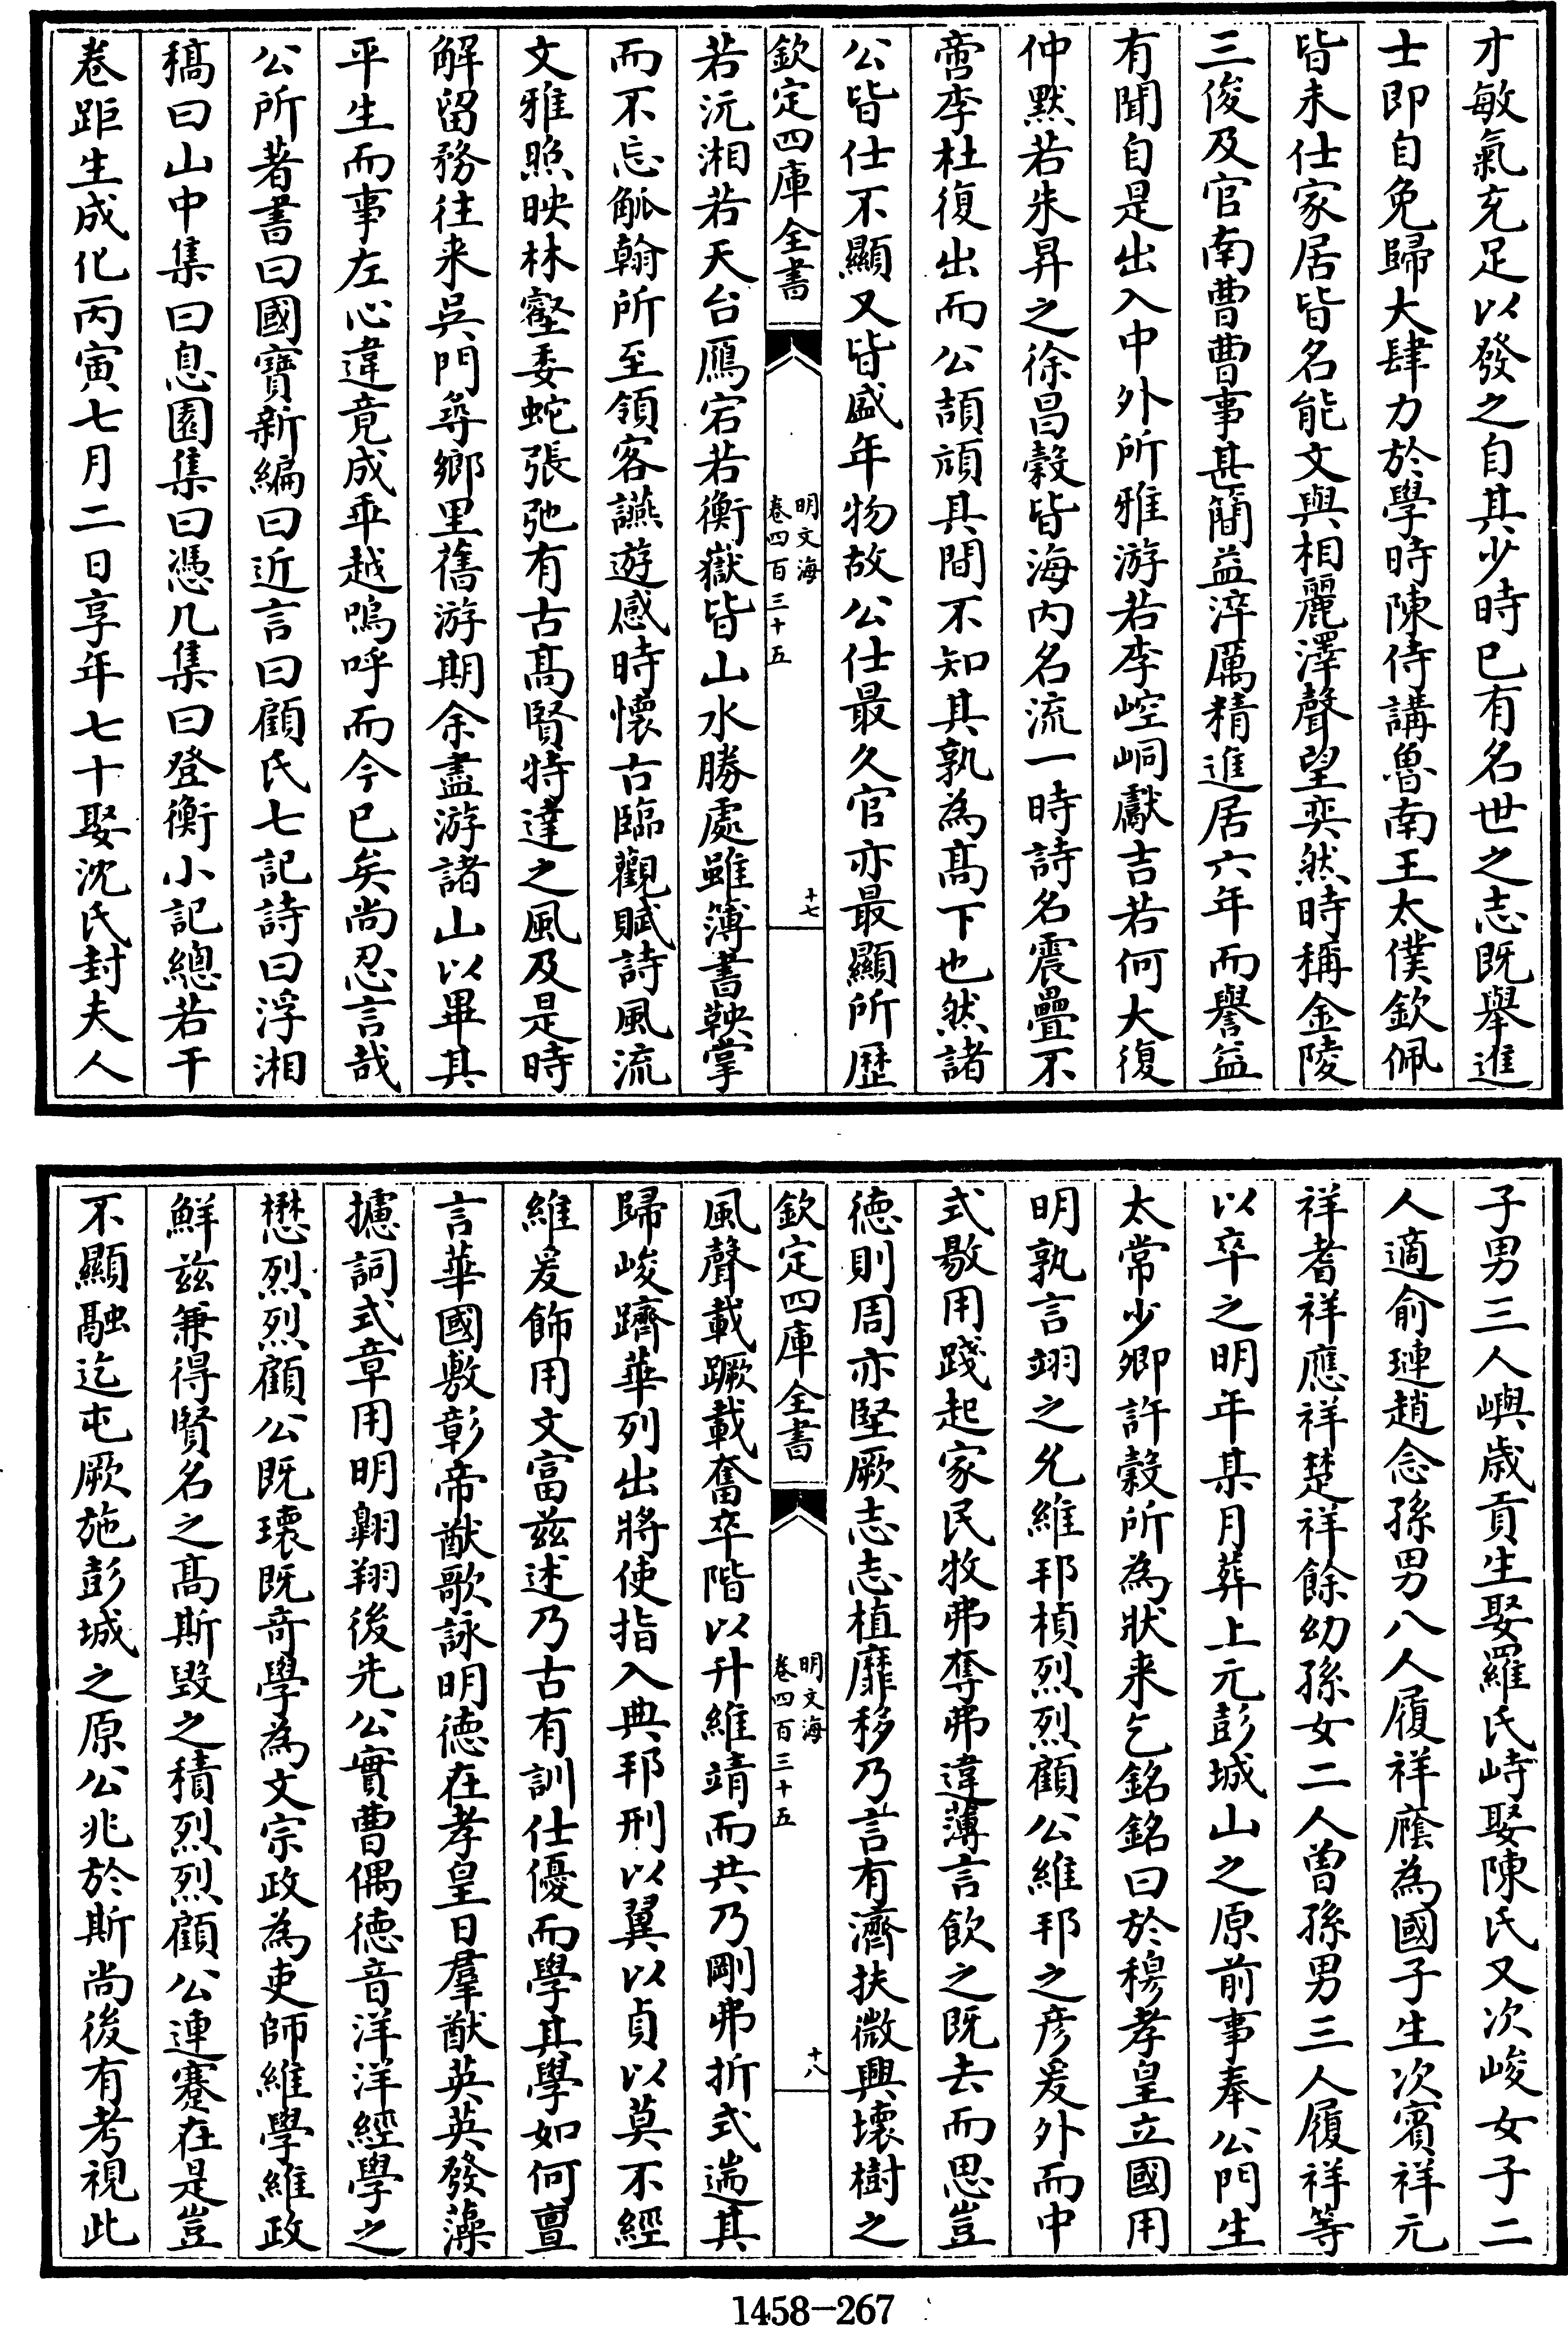 才敏氣充足以發之自其少時已有名世之志既舉進
士即自免歸大肆力於學時陳侍講魯南王太僕欽佩
皆未仕家居皆名能文與相麗澤聲望奕然時稱金陵
三俊及官南曹曹事甚簡益淬厲精進居六年而譽益
有聞自是出入中外所雅游若李崆峒獻吉若何大復
仲默若朱昇之徐昌穀皆海内名流一時詩名震疊不
啻李杜復出而公頡頏其間不知其孰為高下也然諸
公皆仕不顯又皆盛年物故公仕最久官亦最顯所歴
欽定四庫全書
明文海
卷四百三十五
十七
若沅湘若天台鴈宕若衡嶽皆山水勝處雖簿書鞅掌
而不忘觚翰所至領客讌遊感時懷古臨觀賦詩風流
文雅照映林壑委蛇張弛有古高賢特達之風及是時
解留務往来吳門尋鄉里舊游期余盡游諸山以畢其
平生而事左心違竟成乖越嗚呼而今已矣尚忍言哉
公所著書曰國寶新編曰近言曰顧氏七記詩曰浮湘
稿曰山中集曰息園集曰憑几集曰登衡小記總若干
卷距生成化丙寅七月二日享年七十娶沈氏封夫人
子男三人嶼歳貢生娶羅氏峙娶陳氏又次峻女子二
人適俞璉趙念孫男八人履祥廕為國子生次賓祥元
祥耆祥應祥楚祥餘幼孫女二人曾孫男三人履祥等
以卒之明年某月葬上元彭城山之原前事奉公門生
太常少卿許穀所為狀来乞銘銘曰於穆孝皇立國用
明孰言翊之允維邦楨烈烈顧公維邦之彦爰外而中
式敭用踐起家民牧弗奪弗違薄言飲之既去而思豈
徳則周亦堅厥志志植靡移乃言有濟扶微興壊樹之
欽定四庫全書
明文海
卷四百三十五
十八
風聲載蹶載奮卒階以升維靖而共乃剛弗折式遄其
歸峻躋華列出將使指入典邦刑以翼以貞以莫不經
維爰飾用文富兹述乃古有訓仕優而學其學如何亶
言華國敷彰帝猷歌詠明徳在孝皇日羣猷英英發藻
攄詞式章用明翺翔後先公實曹偶徳音洋洋經學之
懋烈烈顧公既瓌既竒學為文宗政為吏師維學維政
鮮兹兼得賢名之高斯毀之積烈烈顧公連蹇在是豈
不顯融迄屯厥施彭城之原公兆於斯尚後有考視此
1458-267